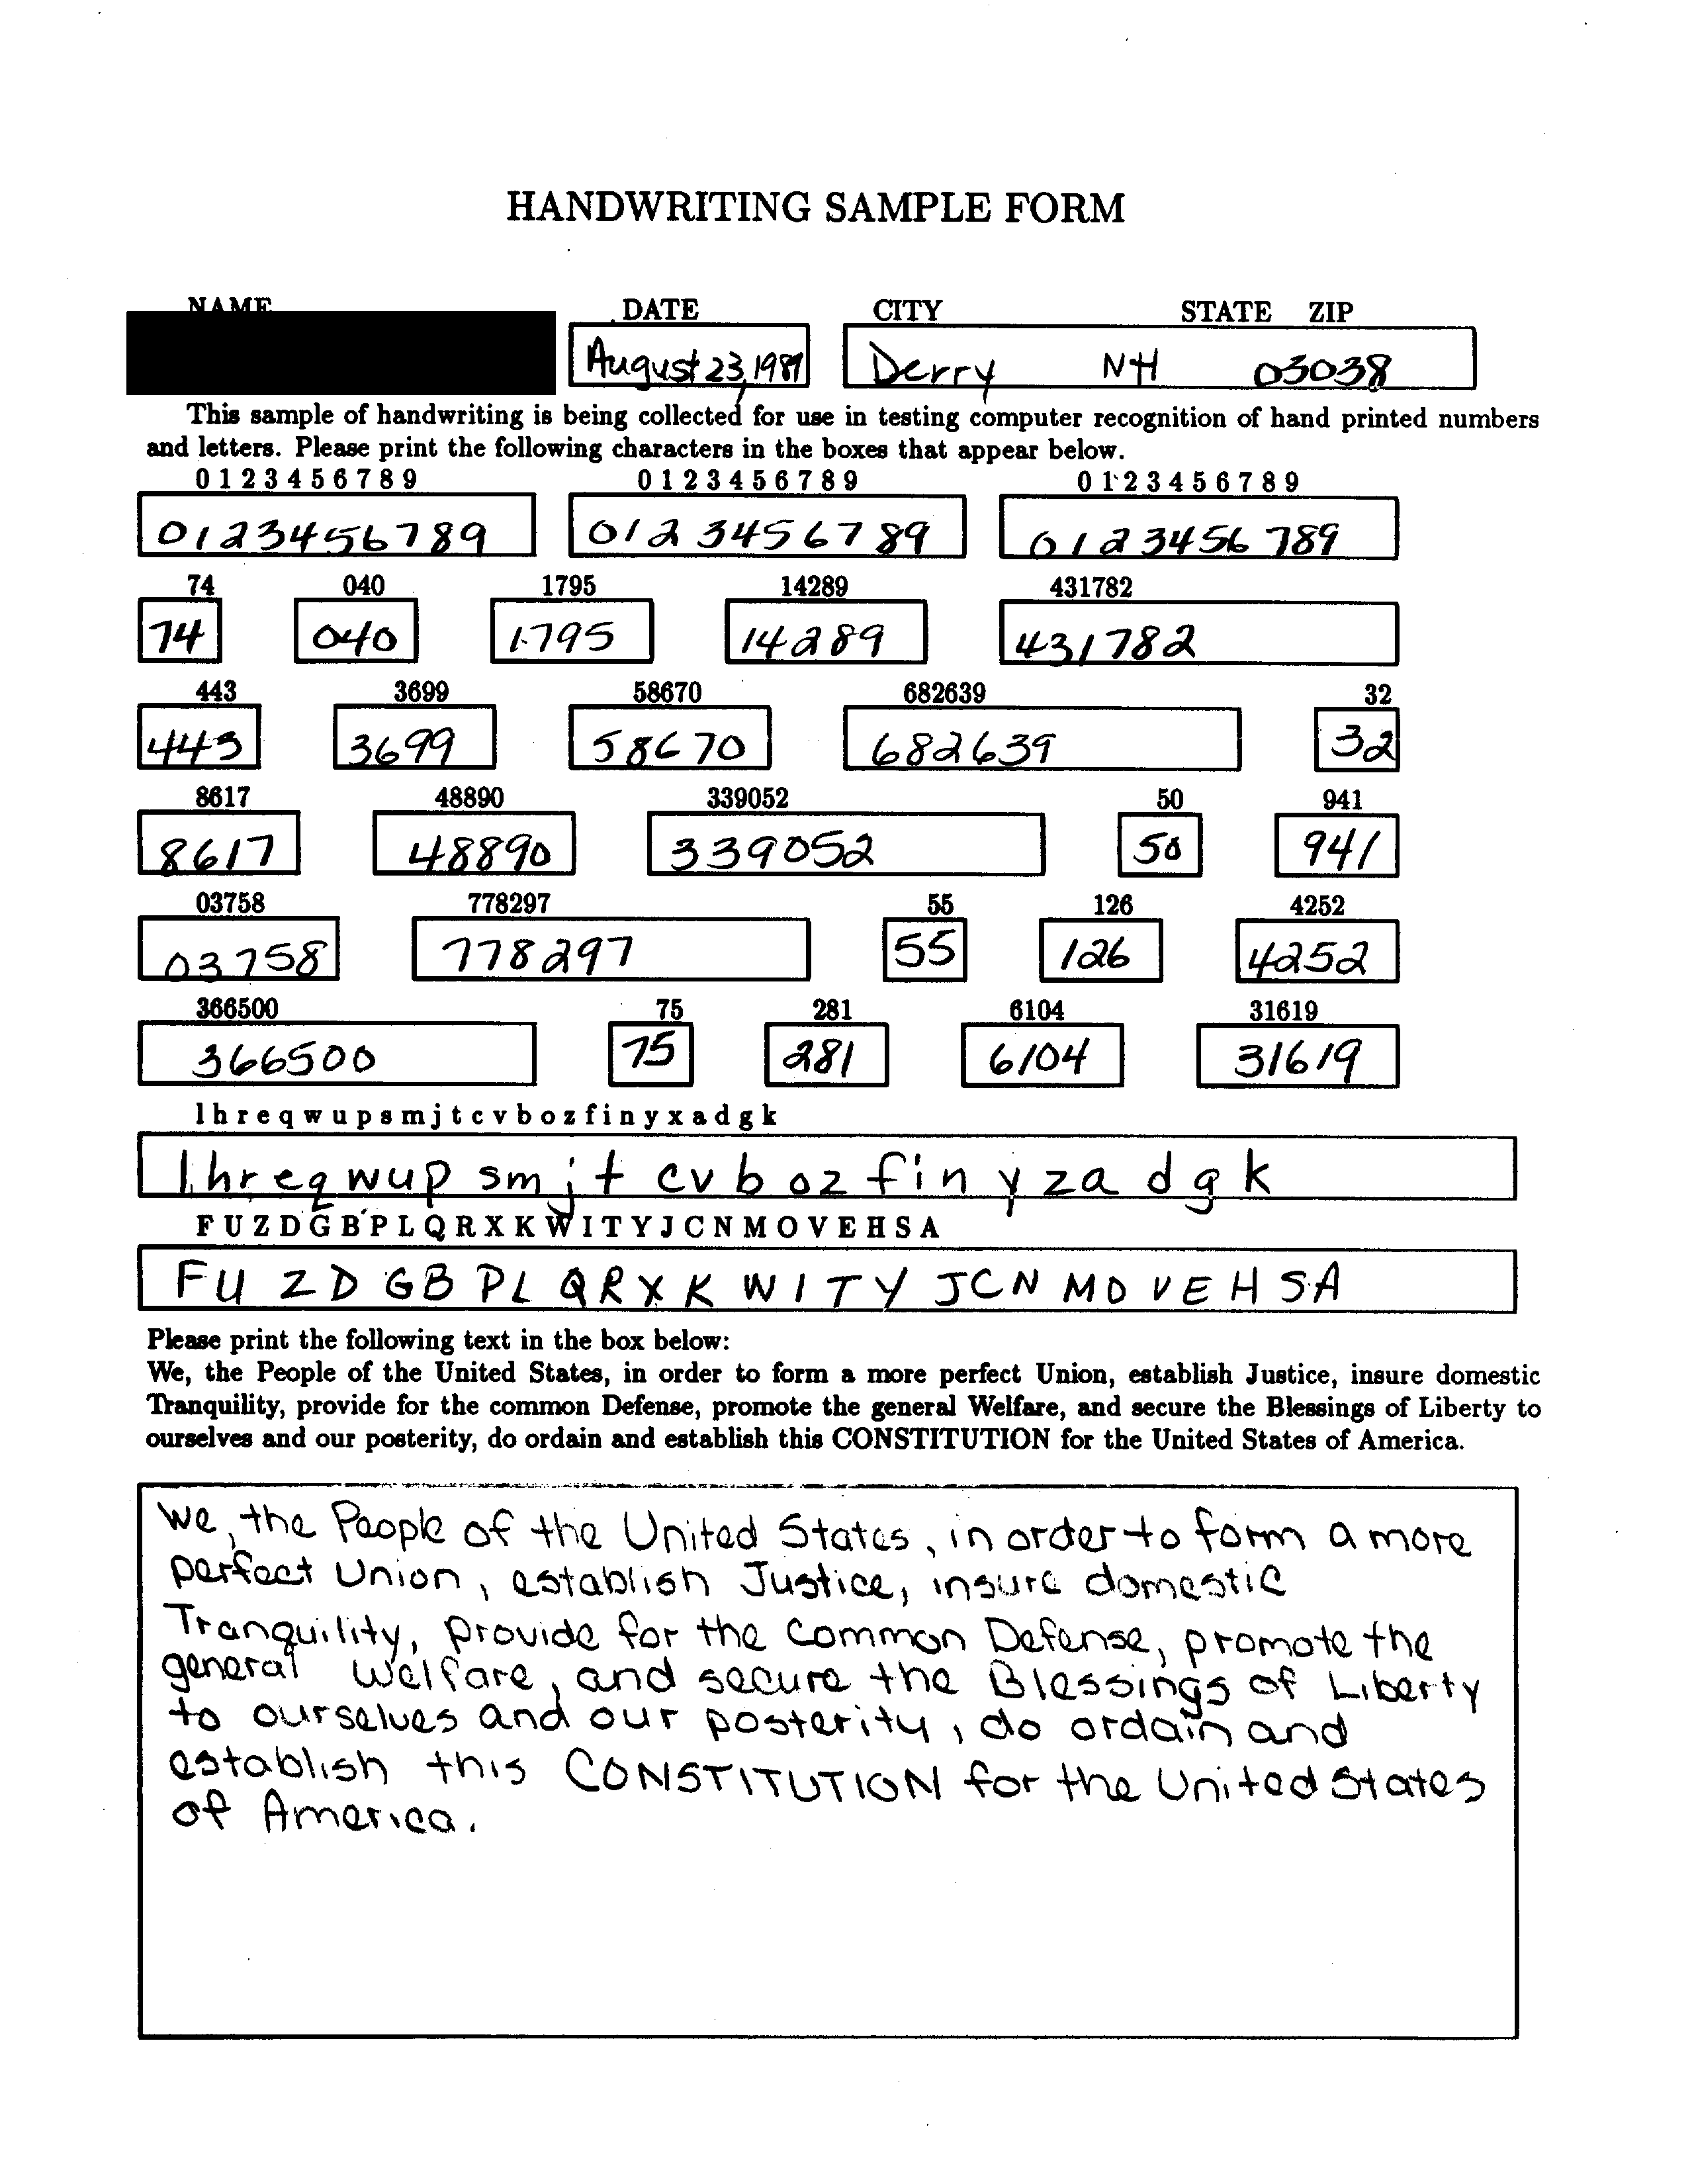 HANDWRITING SAMPLE FORM
NAME DATE CITY STATE ZIP
August 23, 1989 Derry NH 03038
This sample of handwriting is being collected for use in testing computer recognition of hand printed numbers
and letters. Please print the following characters in the boxes that appear below.
0 1 2 3 4 5 6 7 8 9 0 1 2 3 4 5 6 7 8 9 0 1 2 3 4 5 6 7 8 9
0123456789 0123456789 0123456789
74 040 1795 14289 431782
74 040 1795 14289 431782
443 3699 58670 682639 32
443 3699 58670 682639 32
8617 48890 339052 50 941
8617 48890 339052 50 941
03758 778297 55 126 4252
03758 778297 55 126 4252
366500 75 281 6104 31619
366500 75 281 6104 31619
l h r e q w u p s m j t c v b o z f i n y x a d g k
l h r e q w u p s m j t c v b o z f i n y z a d g k
F U Z D G B P L Q R X K W I T Y J C N M O V E H S A
F U Z D G B P L Q R X K W I T Y J C N M O V E H S A
Please print the following text in the box below:
We, the People of the United States, in order to form a more perfect Union, establish Justice, insure domestic
Tranquility, provide for the common Defense, promote the general Welfare, and secure the Blessings of Liberty to
ourselves and our posterity, do ordain and establish this CONSTITUTION for the United States of America.
We, the People of the United States, in order to form a more
perfect Union, establish Justice, insure domestic
Tranquility, provide for the common Defense, promote the
general Welfare, and secure the Blessings of Liberty
to ourselves and our posterity, do ordain and
establish this CONSTITUTION for the United States
of America.